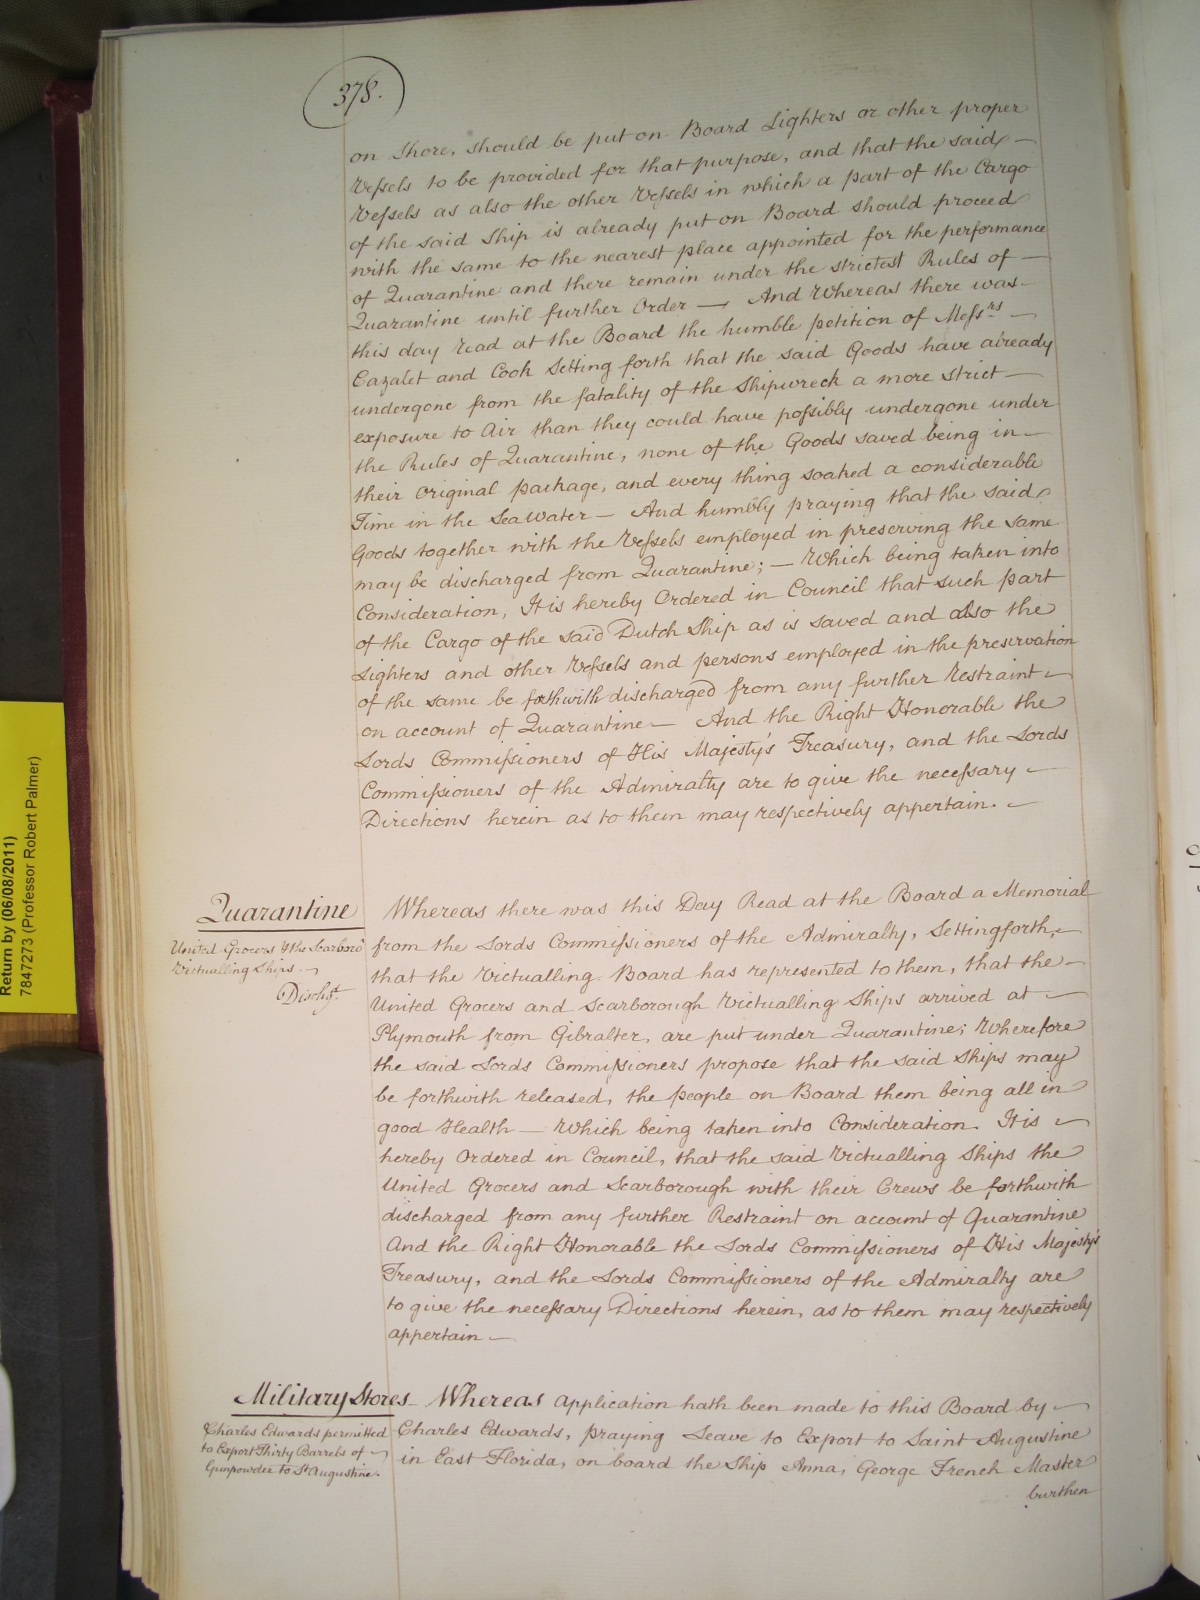 378.
on Shore, should be put on Board Lighters or other proper
Vessels to be provided for that purpose, and that the said —
Vessels as also the other Vessels in which a part of the Cargo
of the said Ship is already put on Board should proceed
with the same to the nearest place appointed for the performance
of Quarantine and there remain under the strictest Rules of —
Quarantine until further Order — And Whereas there was —
this day read at the Board the humble petition of Messrs —
Cazalet and Cook Setting forth that the said Goods have already
undergone from the fatality of the Shipwreck a more strict —
exposure to Air than they could have possibly undergone under
the Rules of Quarantine, none of the Goods saved being in —
their Original package, and every thing soaked a considerable
Time in the Sea Water — And humbly praying that the said
Goods together with the Vessels employed in preserving the same
may be discharged from Quarantine; — Which being taken into
Consideration, It is hereby Ordered in Council that such part
of the Cargo of the said Dutch Ship as is saved and also the
Lighters and other Vessels and persons employed in the preservation
of the same be forthwith discharged from any further Restraint —
on account of Quarantine — And the Right Honorable the
Lords Commissioners of His Majesty's Treasury, and the Lords
Commissioners of the Admiralty are to give the necessary —
Directions herein as to them may respectively appertain. —
Quarantine
United Grocers & the Scarboro'
Victualling Ships —
Dischgt.
Whereas there was this Day Read at the Board a Memorial
from the Lords Commissioners of the Admiralty, Setting forth, —
that the Victualling Board has represented to them, that the —
United Grocers and Scarborough Victualling Ships arrived at —
Plymouth from Gibralter, are put under Quarantine; Wherefore
the said Lords Commissioners propose that the said Ships may
be forthwith released, the people on Board them being all in
good Health — Which being taken into Consideration. It is —
hereby Ordered in Council, that the said Victualling Ships the
United Grocers and Scarborough with their Crews be forthwith
discharged from any further Restraint on account of Quarantine
And the Right Honorable the Lords Commissioners of His Majesty's
Treasury, and the Lords Commissioners of the Admiralty are
to give the necessary Directions herein, as to them may respectively
appertain —
Military Stores —
Charles Edwards permitted
to Export Thirty Barrels of —
Gunpowder to St Augustine.
Whereas Application hath been made to this Board by —
Charles Edwards, praying Leave to Export to Saint Augustine
in East Florida, on board the Ship Anna, George French Master
burthen
Return by (06/08/2011)
7847273 (Professor Robert Palmer)